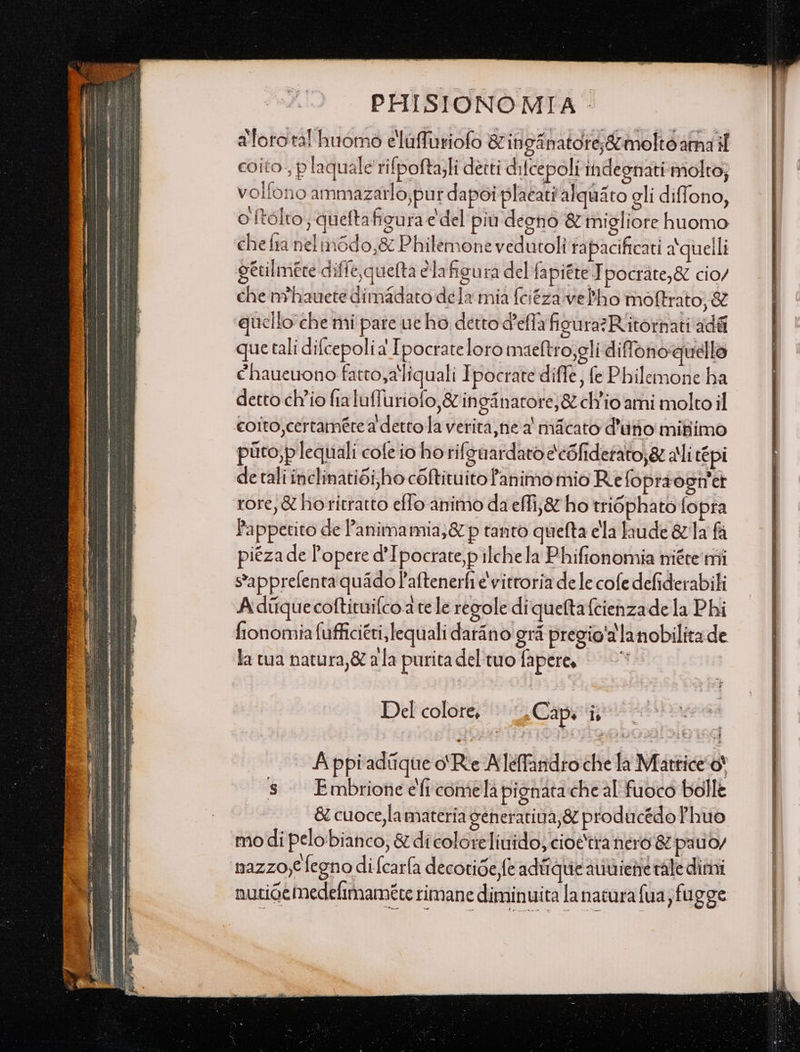 PHISIONOMIA
a'loro tal huomo e'luſſurioſo & ingãnatore,& molto ama il
coito, p laquale riſpoſta,li detti diſcepoli indegnati molto,
volſono ammazarlo,pur dapoi placati alquãto gli diſſono,
o'ſtolto, queſta figura e'del piu degno & migliore huomo
che ſia nel mõdo,& Philemone vedutoli rapacificati a'quelli
gẽtilmẽte diſſe,queſta e'la figura del ſapiẽte Ipocrate,& cio/
che m'hauete dimãdato de la mia ſciẽza ve l'ho moſtrato, &
quello che mi pare ue ho detto d'eſſa figura?Ritornati adũ
que tali diſcepoli a' Ipocrate loro maeſtro,gli diſſono quello
c'haueuono fatto,a'liquali Ipocrate diſſe, ſe Philemone ha
detto ch'io ſia luſſurioſo,& ingãnatore,& ch'io ami molto il
coito,certamẽte a'detto la verita,ne a' mãcato d'uno minimo
pũto,p lequali coſe io ho riſguardato e'cõſiderato,& a'li tẽpi
de tali inclinatiõi,ho cõſtituito l'animo mio Re ſopra ogn'er
rore, & ho ritratto eſſo animo da eſſi,& ho triõphato ſopra
l'appetito de l'anima mia,& p tanto queſta e'la laude & la ſa
piẽza de l'opere d'Ipocrate,p ilche la Phiſionomia niẽte mi
s'appreſenta quãdo l'aſtenerſi e'vittoria de le coſe deſiderabili
Adũque coſtituiſco a' te le regole di queſta ſcienza de la Phi
ſionomia ſufficiẽti,lequali darãno grã pregio a'la nobilita de
la tua natura,& a'la purita del tuo ſapere.
Del colore, Cap. i.
Appi adũque o'Re Aleſſandro che la Matrice o'
s Embrione e'ſi come la pignata che al fuoco bolle
& cuoce,la materia generatiua,& producẽdo l'huo
mo di pelo bianco, & di colore liuido, cioe'tra nero & pauo/
nazzo,e'ſegno di ſcarſa decotiõe,ſe adũque auuiene tale dimi
nutiõe medeſimamẽte rimane diminuita la natura ſua, fugge